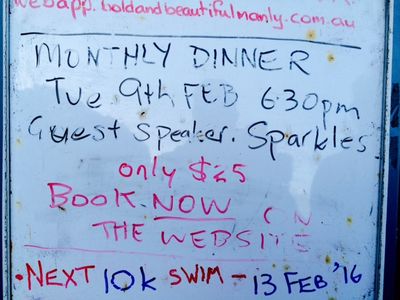 webapp.boldandbeautifulmanly.com.au
MONTHLY DINNER
Tue 9th FEB 6:30pm
Guest Speaker. Sparkles
only $25
BOOK NOW ON
THE WEBSITE
•NEXT 10k SWIM - 13 FEB '16